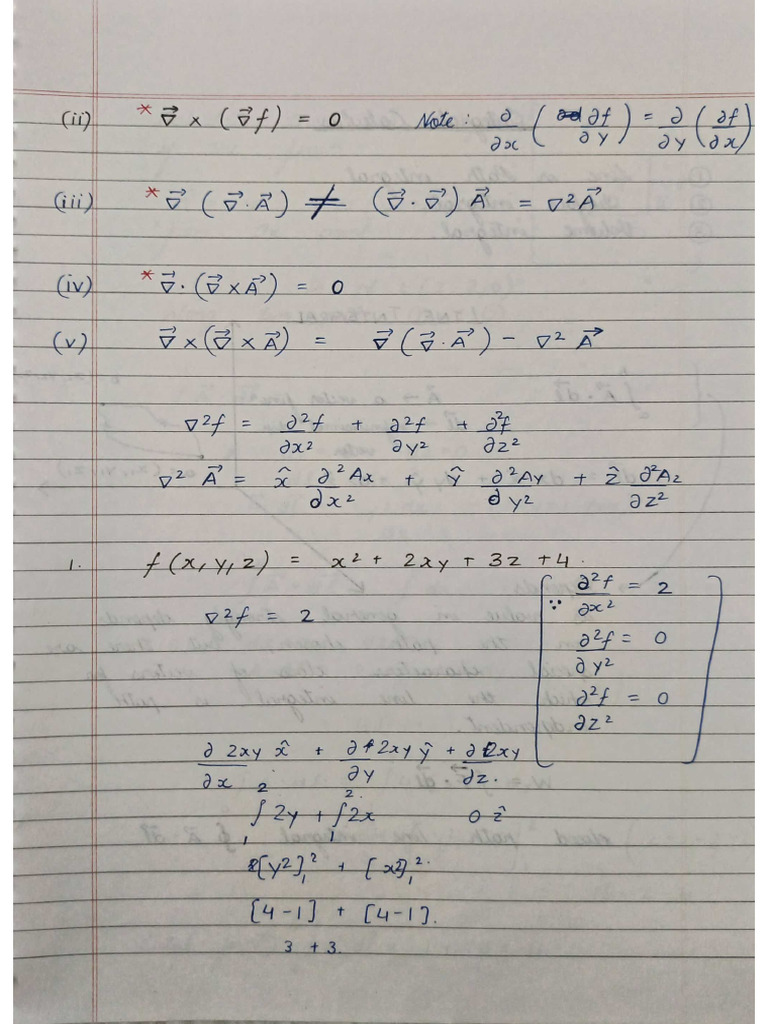 (ii) * ∇⃗ × (∇⃗f) = 0 Note: ∂/∂x (∂f/∂y) = ∂/∂y (∂f/∂x)
(iii) * ∇⃗ (∇⃗·A⃗) ≠ (∇⃗·∇⃗) A⃗ = ∇²A⃗
(iv) * ∇⃗·(∇⃗×A⃗) = 0
(v) ∇⃗×(∇⃗×A⃗) = ∇⃗(∇⃗·A⃗) - ∇² A⃗
∇²f = ∂²f/∂x² + ∂²f/∂y² + ∂²f/∂z²
∇² A⃗ = x̂ ∂²Ax/∂x² + ŷ ∂²Ay/∂y² + ẑ ∂²Az/∂z²
1. f(x,y,z) = x² + 2xy + 3z + 4.
∇²f = 2 [∵ ∂²f/∂x² = 2
∂²f/∂y² = 0
∂²f/∂z² = 0]
∂/∂x 2xy x̂ + ∂/∂y 2xy ŷ + ∂/∂z 2xy
∫₁² 2y + ∫₁² 2x 0 ẑ
[y²]₁² + [x²]₁².
[4-1] + [4-1].
3 + 3.